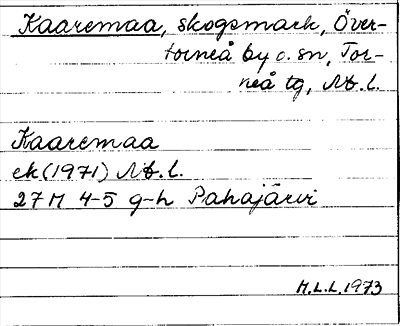 Kaaremaa, skogsmark, Över-
torneå by o. sn, Tor-
neå tg, Nb. l.
Kaaremaa
ek (1971) Nb. l.
27 M 4-5 g-h Pahajärvi
H.L.L. 1973